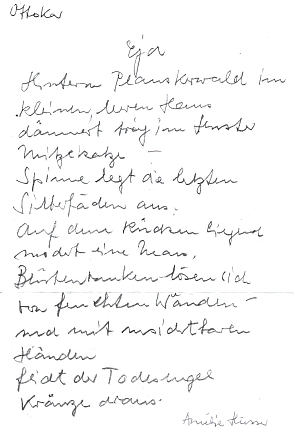 Ottokar
Hinterm Planskerwald im
kleinen, leeren Haus
dämmert träg im Fenster
Mitzekatze –
Spinne legt die letzten
Silberfäden aus.
Auf dem Rücken liegend
modert eine Maus.
Blütenranken lösen sich
von feuchten Wänden –
und mit unsichtbaren
Händen
flicht der Todesengel
Kränze draus.
Amélie